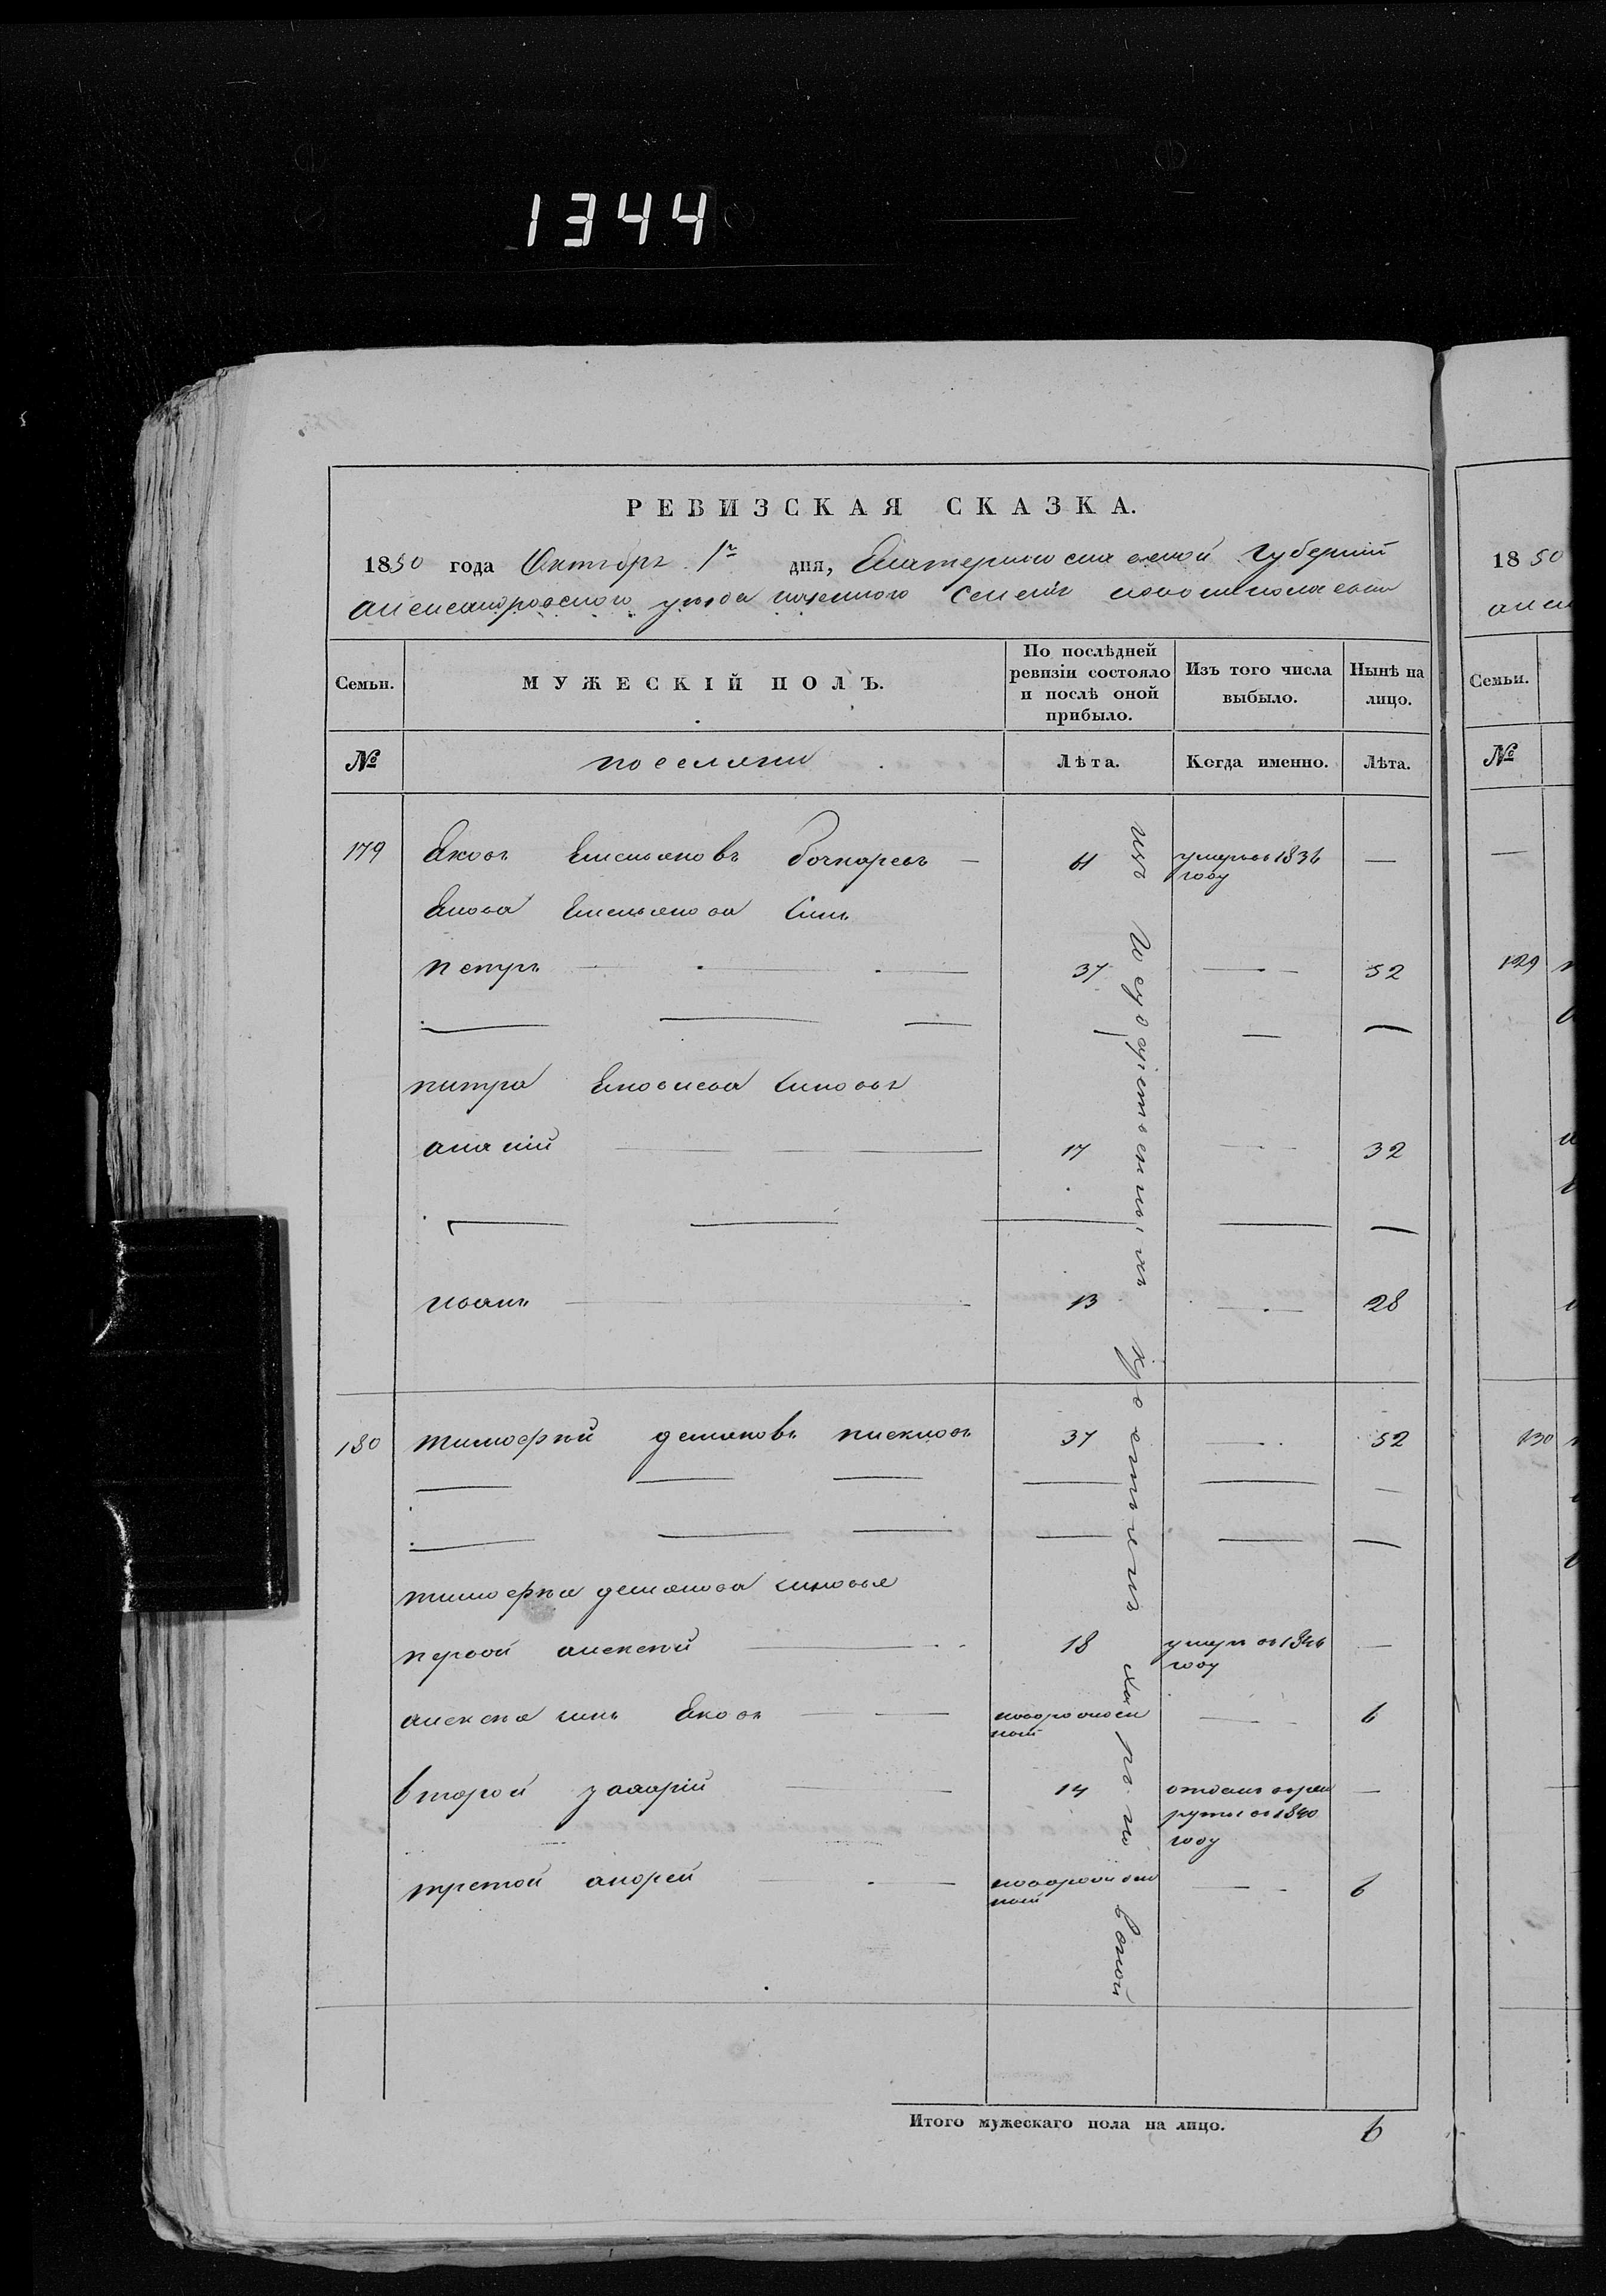 1344
РЕВИЗСКАЯ СКАЗКА.
1850 года Октября 1го дня, Екатеринославской Губерніи
александровского уезда казенного Селенія новониколаевки
Семьи.
МУЖЕСКІЙ ПОЛЪ.
По послѣдней ревизіи состояло и послѣ оной прибыло.
Изъ того числа выбыло.
Нынѣ на лицо.
№
поселяни
Лѣта.
Когда именно.
Лѣта.
179 Яковъ Емельяновъ Бочкаревъ — 61 умеръ въ 1836 году —
Якова Емельянова Синъ
петръ — 37 — 52
петра Яковлева Синовья
ананій — 17 — 32
иванъ — 13 — 28
180 тимофѣй демяновъ 37 — 52
тимофѣя демянова синовья
первой алексѣй — 18 умеръ въ 1846 году —
алексѣя синъ Яковъ — новорожденной — 6
второй захарій — 14 отданъ в рекруты въ 1840 году —
третой андрей — новорожденной — 6
изъ Государственныхъ крестьянъ
Итого мужескаго пола на лицо. 6
1850
Семьи.
№
129
130